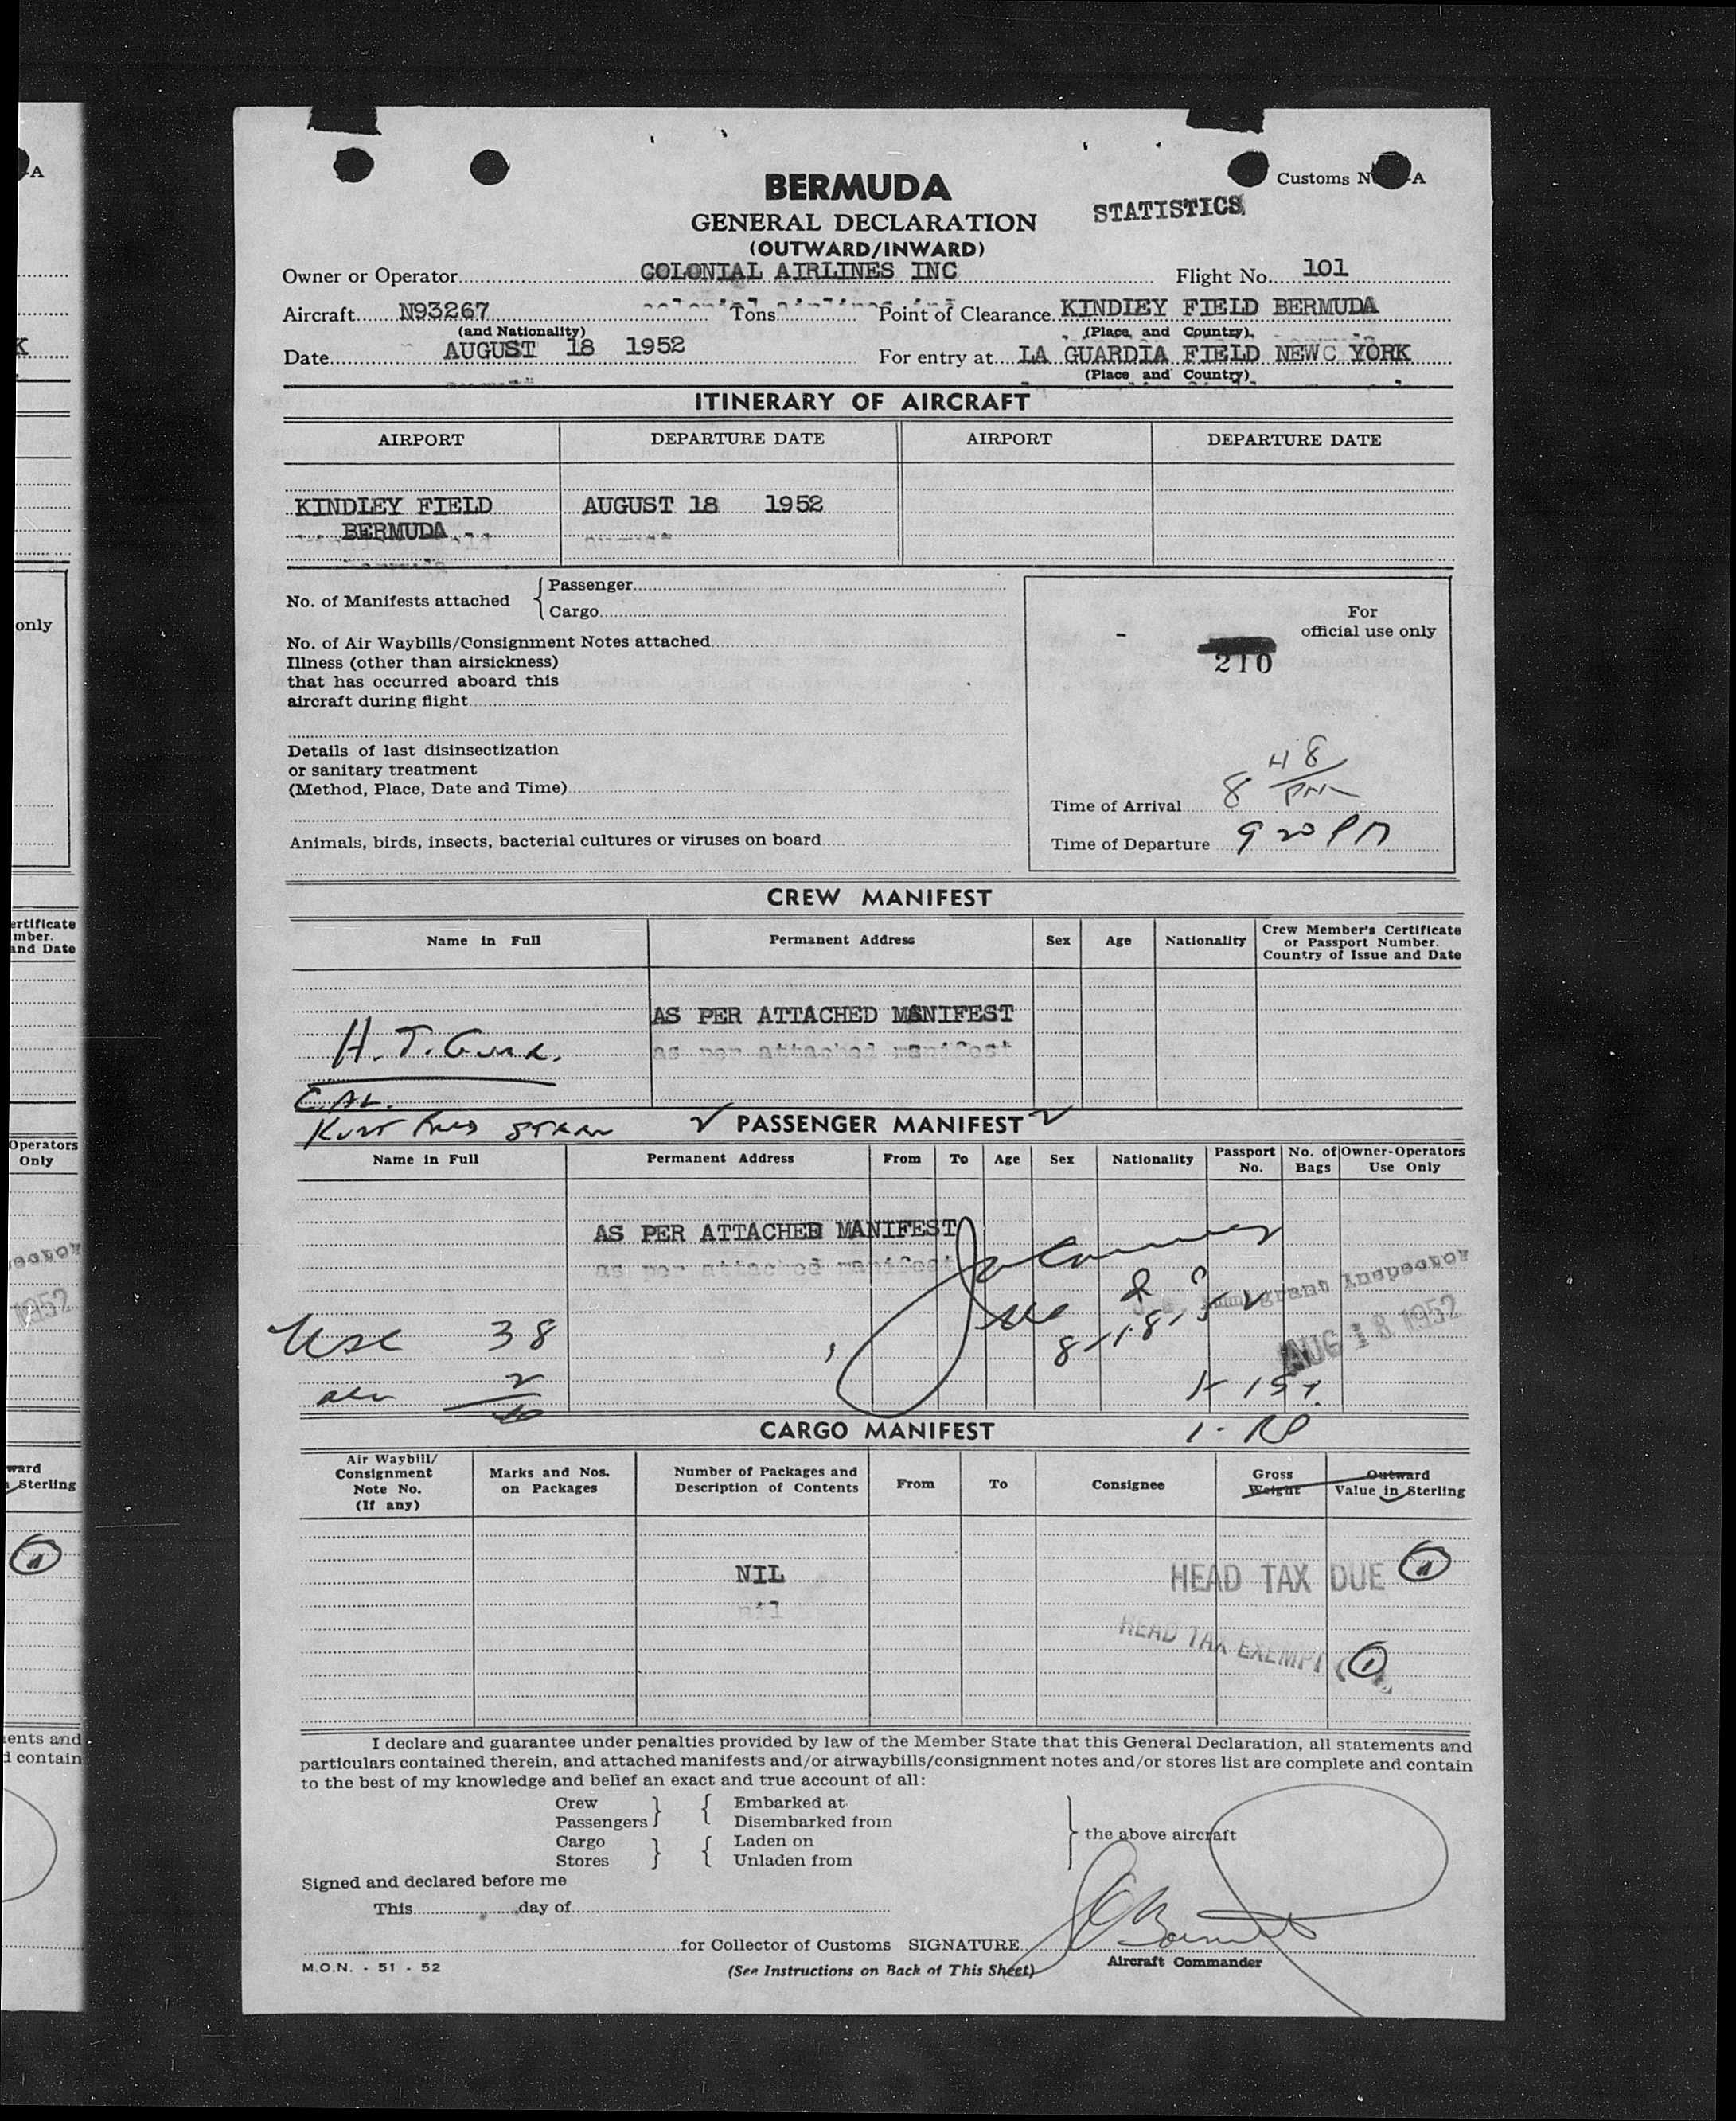 BERMUDA
Customs N A
STATISTICS
GENERAL DECLARATION
(OUTWARD/INWARD)
Owner or Operator COLONIAL AIRLINES INC Flight No. 101
Aircraft N93267 Tons Point of Clearance KINDLEY FIELD BERMUDA
(and Nationality) (Place and Country)
Date AUGUST 18 1952 For entry at LA GUARDIA FIELD NEWC YORK
(Place and Country)
ITINERARY OF AIRCRAFT
AIRPORT DEPARTURE DATE AIRPORT DEPARTURE DATE
KINDLEY FIELD AUGUST 18 1952
BERMUDA
No. of Manifests attached { Passenger
Cargo
For
official use only
210
No. of Air Waybills/Consignment Notes attached
Illness (other than airsickness)
that has occurred aboard this
aircraft during flight
Details of last disinsectization
or sanitary treatment
(Method, Place, Date and Time)
Time of Arrival 8 48 PM
Animals, birds, insects, bacterial cultures or viruses on board
Time of Departure 9 20 PM
CREW MANIFEST
Name in Full Permanent Address Sex Age Nationality Crew Member's Certificate
or Passport Number.
Country of Issue and Date
AS PER ATTACHED MANIFEST
H. T.
as per attached manifest
C.AL.
PASSENGER MANIFEST
Name in Full Permanent Address From To Age Sex Nationality Passport No. No. of Bags Owner-Operators Use Only
AS PER ATTACHED MANIFEST
as per attached manifest
Immigrant Inspector
8-18-52
AUG 18 1952
USC 38
2
CARGO MANIFEST
Air Waybill/
Consignment
Note No.
(If any)
Marks and Nos.
on Packages
Number of Packages and
Description of Contents
From To Consignee
Gross
Weight
Outward
Value in Sterling
NIL
nil
HEAD TAX DUE
HEAD TAX EXEMPT 1
I declare and guarantee under penalties provided by law of the Member State that this General Declaration, all statements and
particulars contained therein, and attached manifests and/or airwaybills/consignment notes and/or stores list are complete and contain
to the best of my knowledge and belief an exact and true account of all:
Crew Embarked at
Passengers Disembarked from
Cargo Laden on
Stores Unladen from
the above aircraft
Signed and declared before me
This day of
for Collector of Customs SIGNATURE
M.O.N. - 51 - 52
(See Instructions on Back of This Sheet)
Aircraft Commander
A
K
only
ertificate
mber.
and Date
Operators
Only
1952
ward
Sterling
ents and
d contain